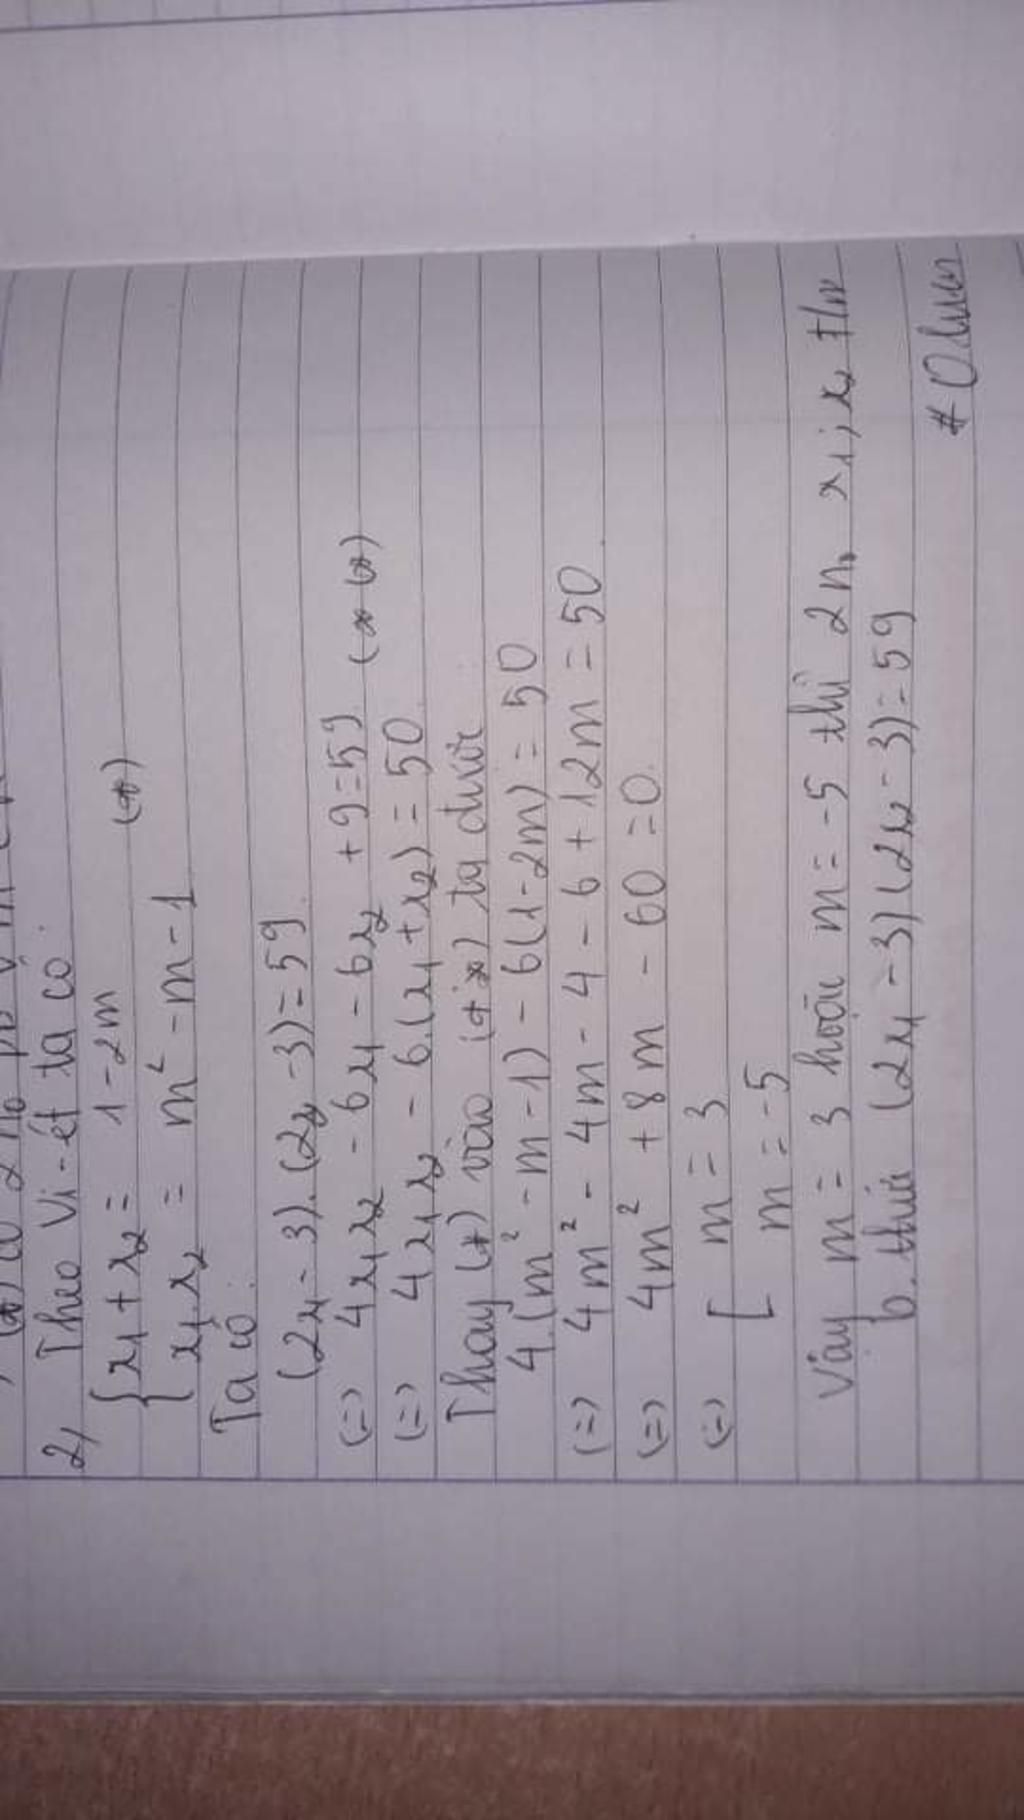 2) Theo Vi-ét ta có:
{x1 + x2 = 1 - 2m (*)
{x1.x2 = m² - m - 1
Ta có:
(2x1 - 3).(2x2 - 3) = 59
(=) 4x1x2 - 6x1 - 6x2 + 9 = 59 (**)
(=) 4x1x2 - 6.(x1 + x2) = 50
Thay (*) vào (**) ta được
4.(m² - m - 1) - 6(1 - 2m) = 50
(=) 4m² - 4m - 4 - 6 + 12m = 50.
(=) 4m² + 8m - 60 = 0.
(=) [ m = 3
m = -5
Vậy m = 3 hoặc m = -5 thì 2 no x1; x2 t/m
b. thức (2x1 - 3)(2x2 - 3) = 59